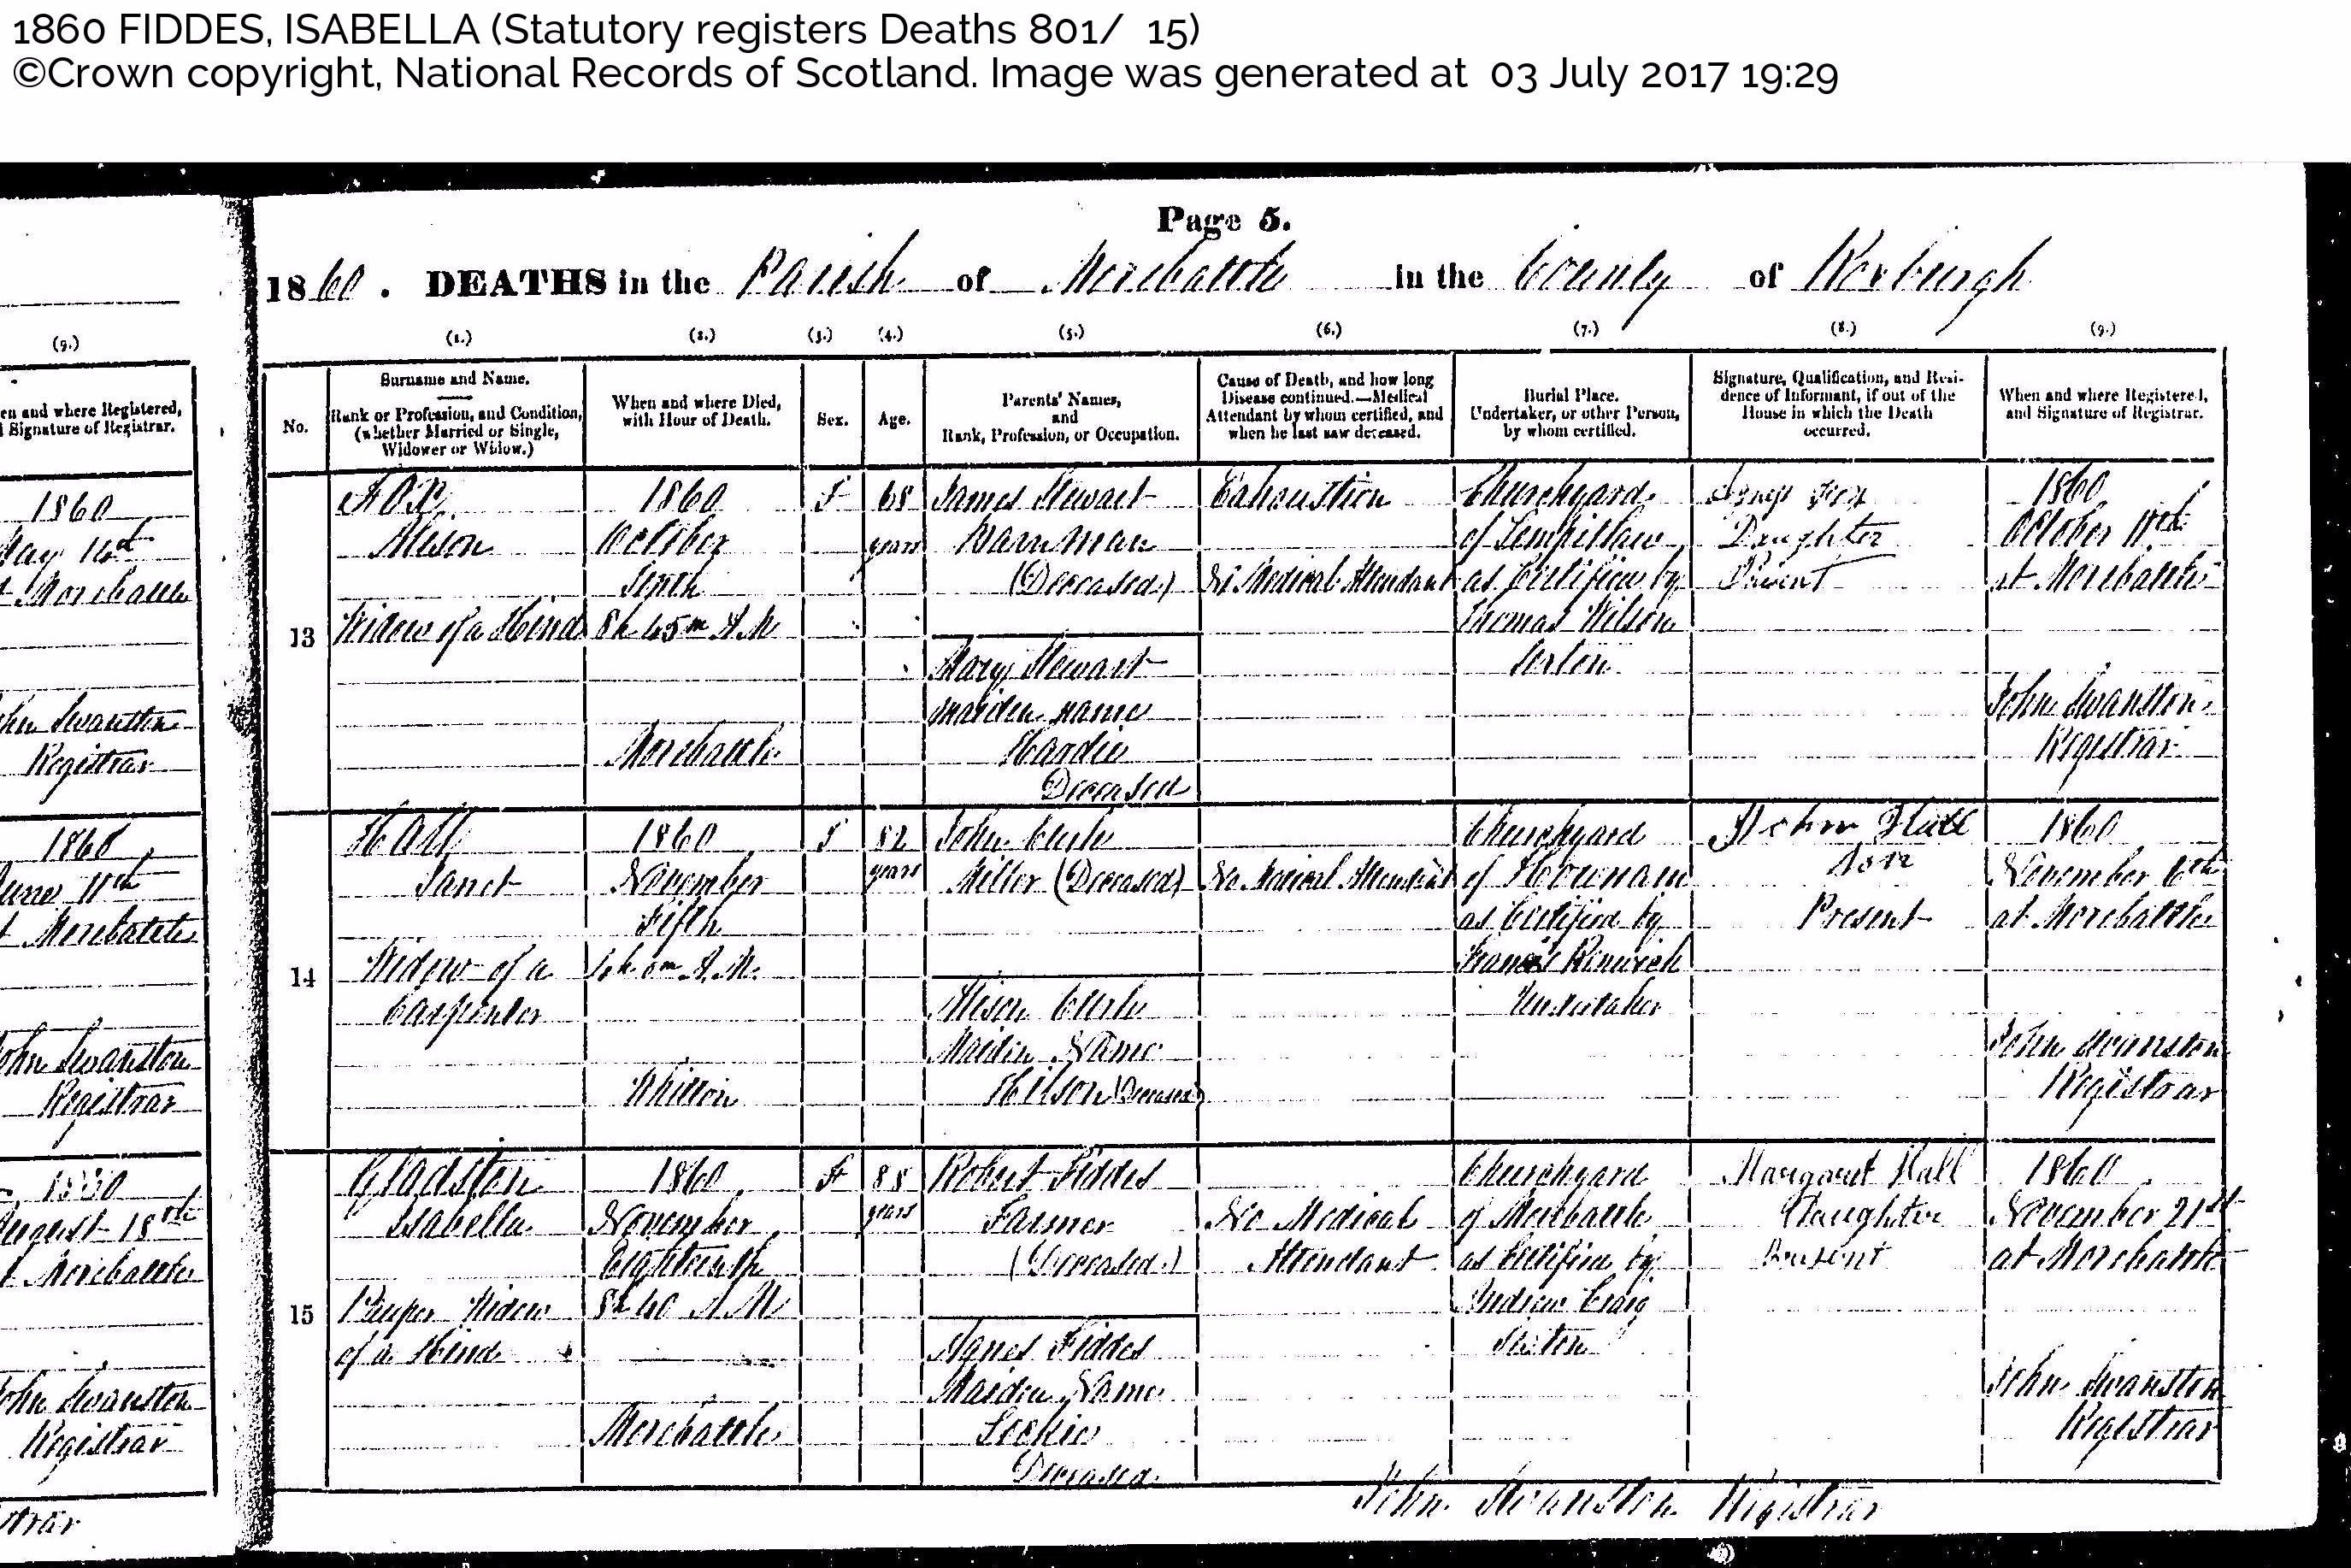 1860 FIDDES, ISABELLA (Statutory registers Deaths 801/ 15)
©Crown copyright, National Records of Scotland. Image was generated at 03 July 2017 19:29
Page 5.
1860. DEATHS in the Parish of Morebattle in the County of Roxburgh
(9.) (1.) (2.) (3.) (4.) (5.) (6.) (7.) (8.) (9.)
en and where Registered,
Signature of Registrar.
1860
May 14th
Morebattle
John Swanston
Registrar
1860
June 11th
Morebattle
John Swanston
Registrar
1860
August 18th
Morebattle
John Swanston
Registrar
strar
No.
Surname and Name.
Rank or Profession, and Condition,
(whether Married or Single,
Widower or Widow.)
When and where Died,
with Hour of Death.
Sex.
Age.
Parents' Names,
and
Rank, Profession, or Occupation.
Cause of Death, and how long
Disease continued.—Medical
Attendant by whom certified, and
when he last saw deceased.
Burial Place.
Undertaker, or other Person,
by whom certified.
Signature, Qualification, and Resi-
dence of Informant, if out of the
House in which the Death
occurred.
When and where Registered,
and Signature of Registrar.
13
Fox
Alison
Widow of a Hind
1860
October
Tenth
8h 45m A.M.
Morebattle
F
68
years
James Stewart
Barnman
(Deceased)
Mary Stewart
maiden name
Hardie
Deceased
Exhaustion
No Medical Attendant
Churchyard
of Lempitlaw
as Certified by
Thomas Wilson
Sexton
Fox
Daughter
Present
1860
October 11th
at Morebattle
John Swanston
Registrar
14
Hall
Janet
Widow of a
Carpenter
1860
November
Fifth
0m A.M.
Whitton
F
82
years
John
Miller (Deceased)
Alison
Maiden Name
Hilson (Deceased)
No Medical Attendant
Churchyard
of Hownam
as Certified by
Francis Renwick
Undertaker
John Hall
Son
Present
1860
November 6th
at Morebattle
John Swanston
Registrar
15
Gladston
Isabella
Pauper Widow
of a Hind
1860
November
Eighteenth
8h 40 A.M.
Morebattle
F
88
years
Robert Fiddes
Farmer
(Deceased)
Agnes Fiddes
Maiden Name
Lockie
Deceased
No Medical
Attendant
Churchyard
of Morebattle
as Certified by
Andrew Craig
Sexton
Margaret Hall
Daughter
Present
1860
November 21st
at Morebattle
John Swanston
Registrar
John Swanston Registrar